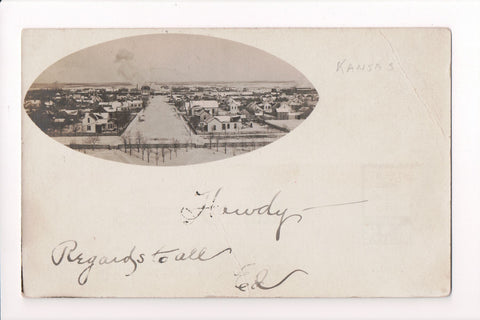 KANSAS
Howdy
Regards to all
Ed